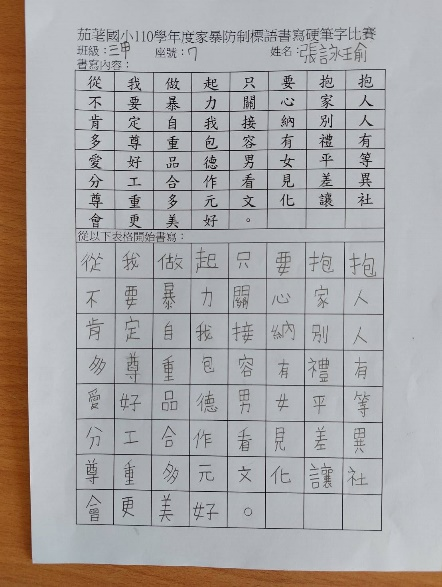 茄荖國小110學年度家暴防制標語書寫硬筆字比賽
班級：三甲 座號：7 姓名：張詠瑜
書寫內容：
從我做起只要抱抱
不要暴力關心家人
肯定自我接納別人
多尊重包容有禮有
愛好品德男女平等
分工合作看見差異
尊重多元文化讓社
會更美好。
從以下表格開始書寫：
從我做起只要抱抱
不要暴力關心家人
肯定自我接納別人
多尊重包容有禮有
愛好品德男女平等
分工合作看見差異
尊重多元文化讓社
會更美好。